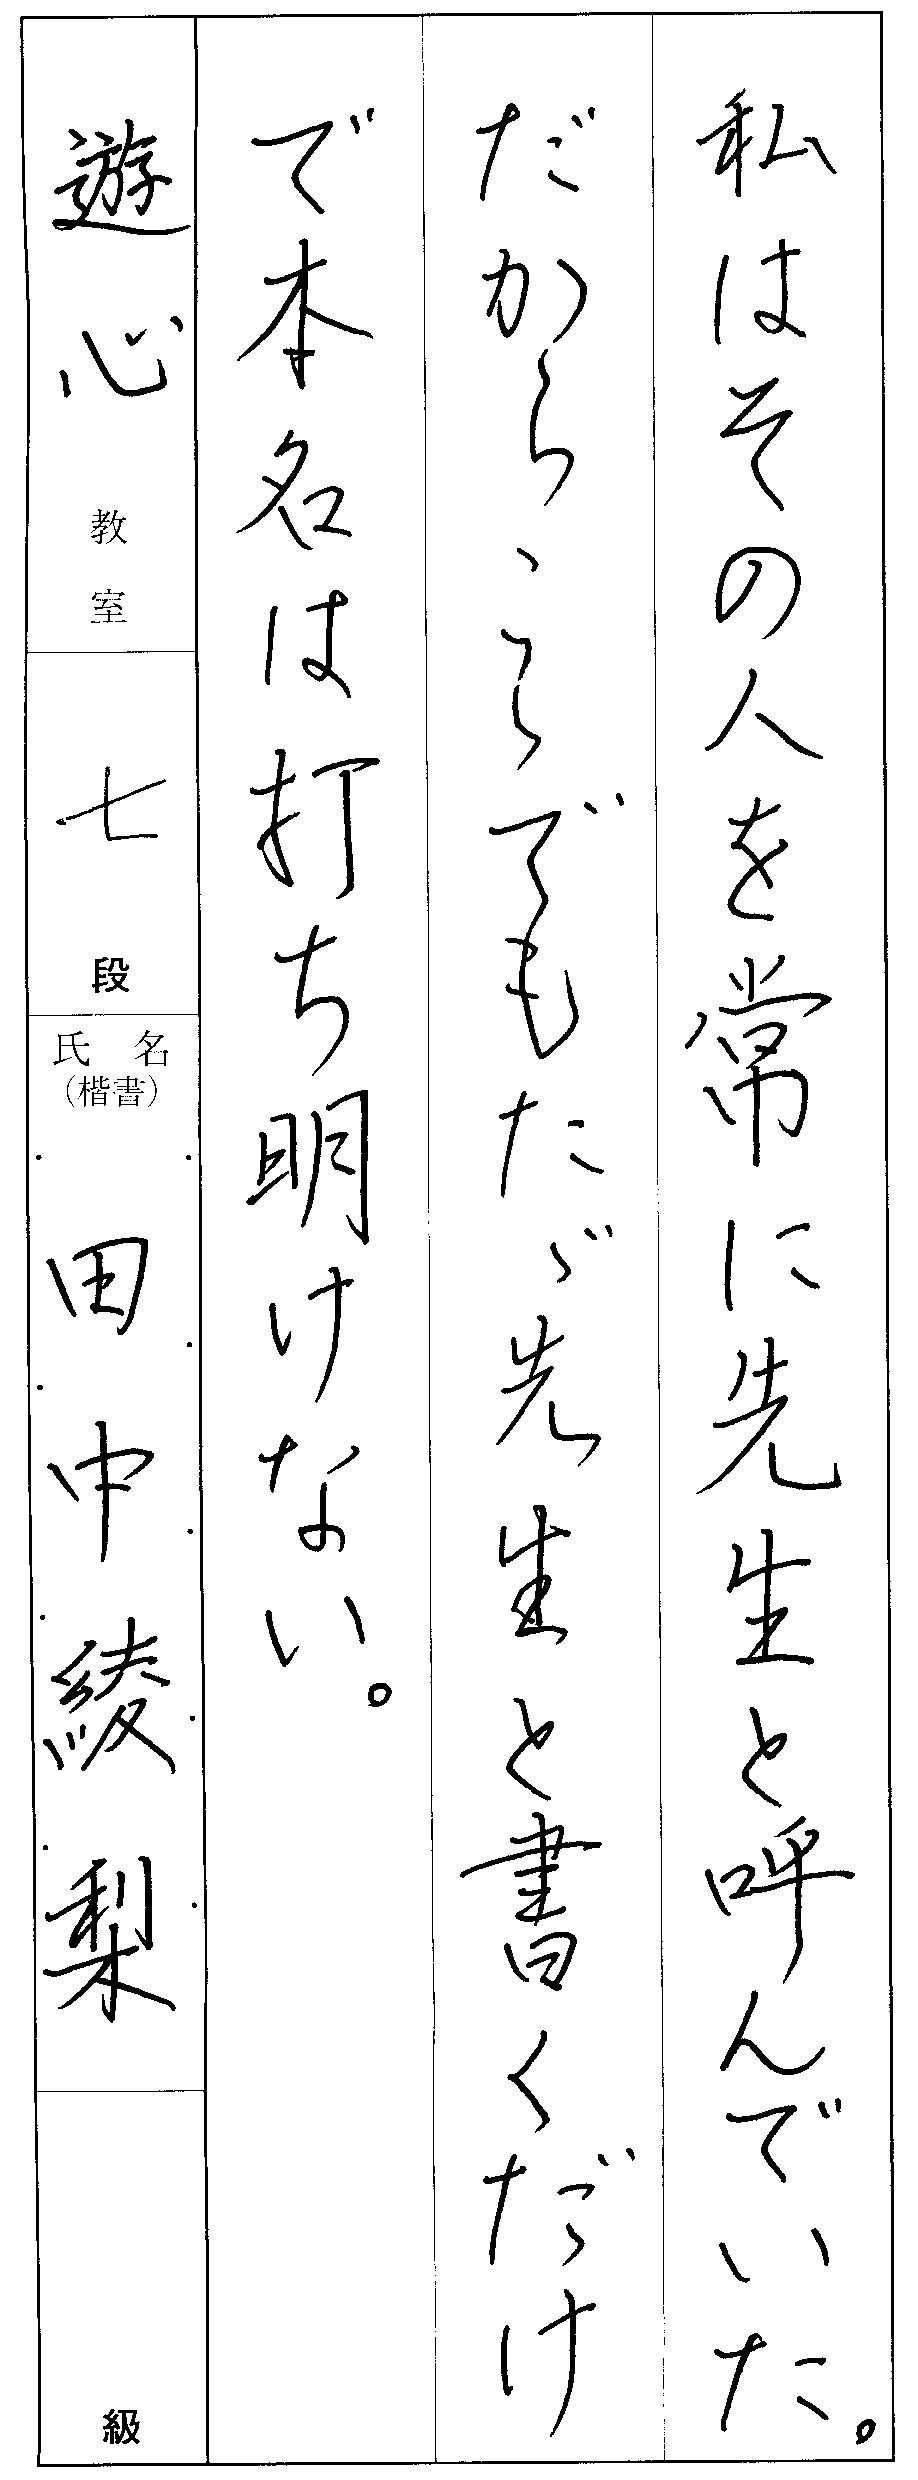 私はその人を常に先生と呼んでいた。
だから、こゝでもたゞ先生と書くだけ
で本名は打ち明けない。
遊心教室
七段
氏名
(楷書)
田中綾梨
級